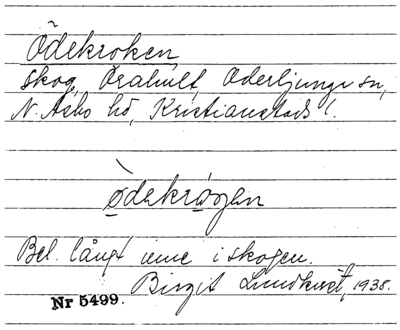 Ödekroken
skog, Örahult, Oderljunga sn,
N. Åsbo hd, Kristianstads l.
ödekrógen
Bel. långt inne i skogen.
Birgit Lundkvist, 1938.
Nr 5499.